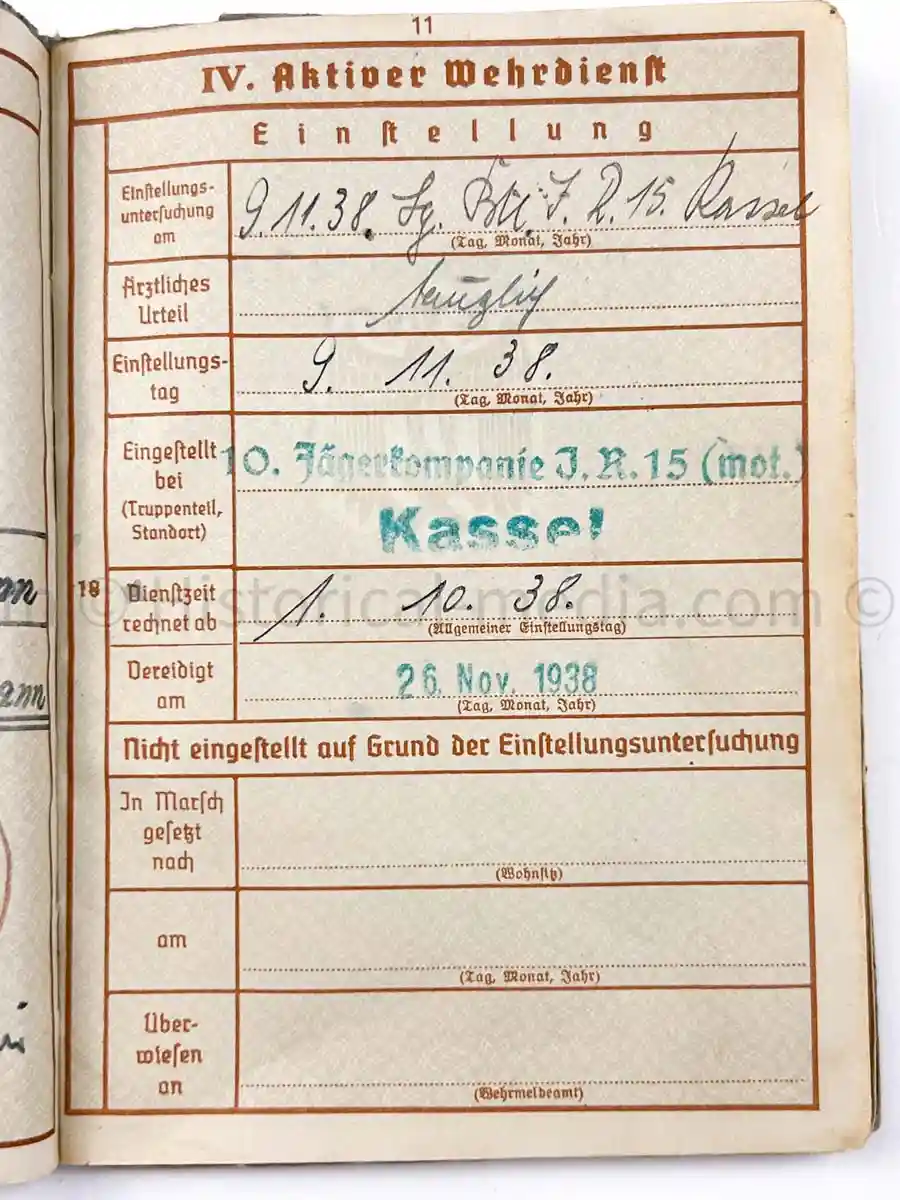 11
IV. Aktiver Wehrdienst
Einstellung
Einstellungs-
untersuchung
am
9.11.38. J. R. 15. Kassel
(Tag, Monat, Jahr)
Ärztliches
Urteil
tauglich
Einstellungs-
tag
9. 11. 38.
(Tag, Monat, Jahr)
Eingestellt
bei
(Truppenteil,
Standort)
10. Jägerkompanie J.R.15 (mot.)
Kassel
18
Dienstzeit
rechnet ab
1. 10. 38.
(Allgemeiner Einstellungstag)
Vereidigt
am
26. Nov. 1938
(Tag, Monat, Jahr)
Nicht eingestellt auf Grund der Einstellungsuntersuchung
In Marsch
gesetzt
nach
(Wohnsitz)
am
(Tag, Monat, Jahr)
Über-
wiesen
an
(Wehrmeldeamt)
© Historical-media.com ©